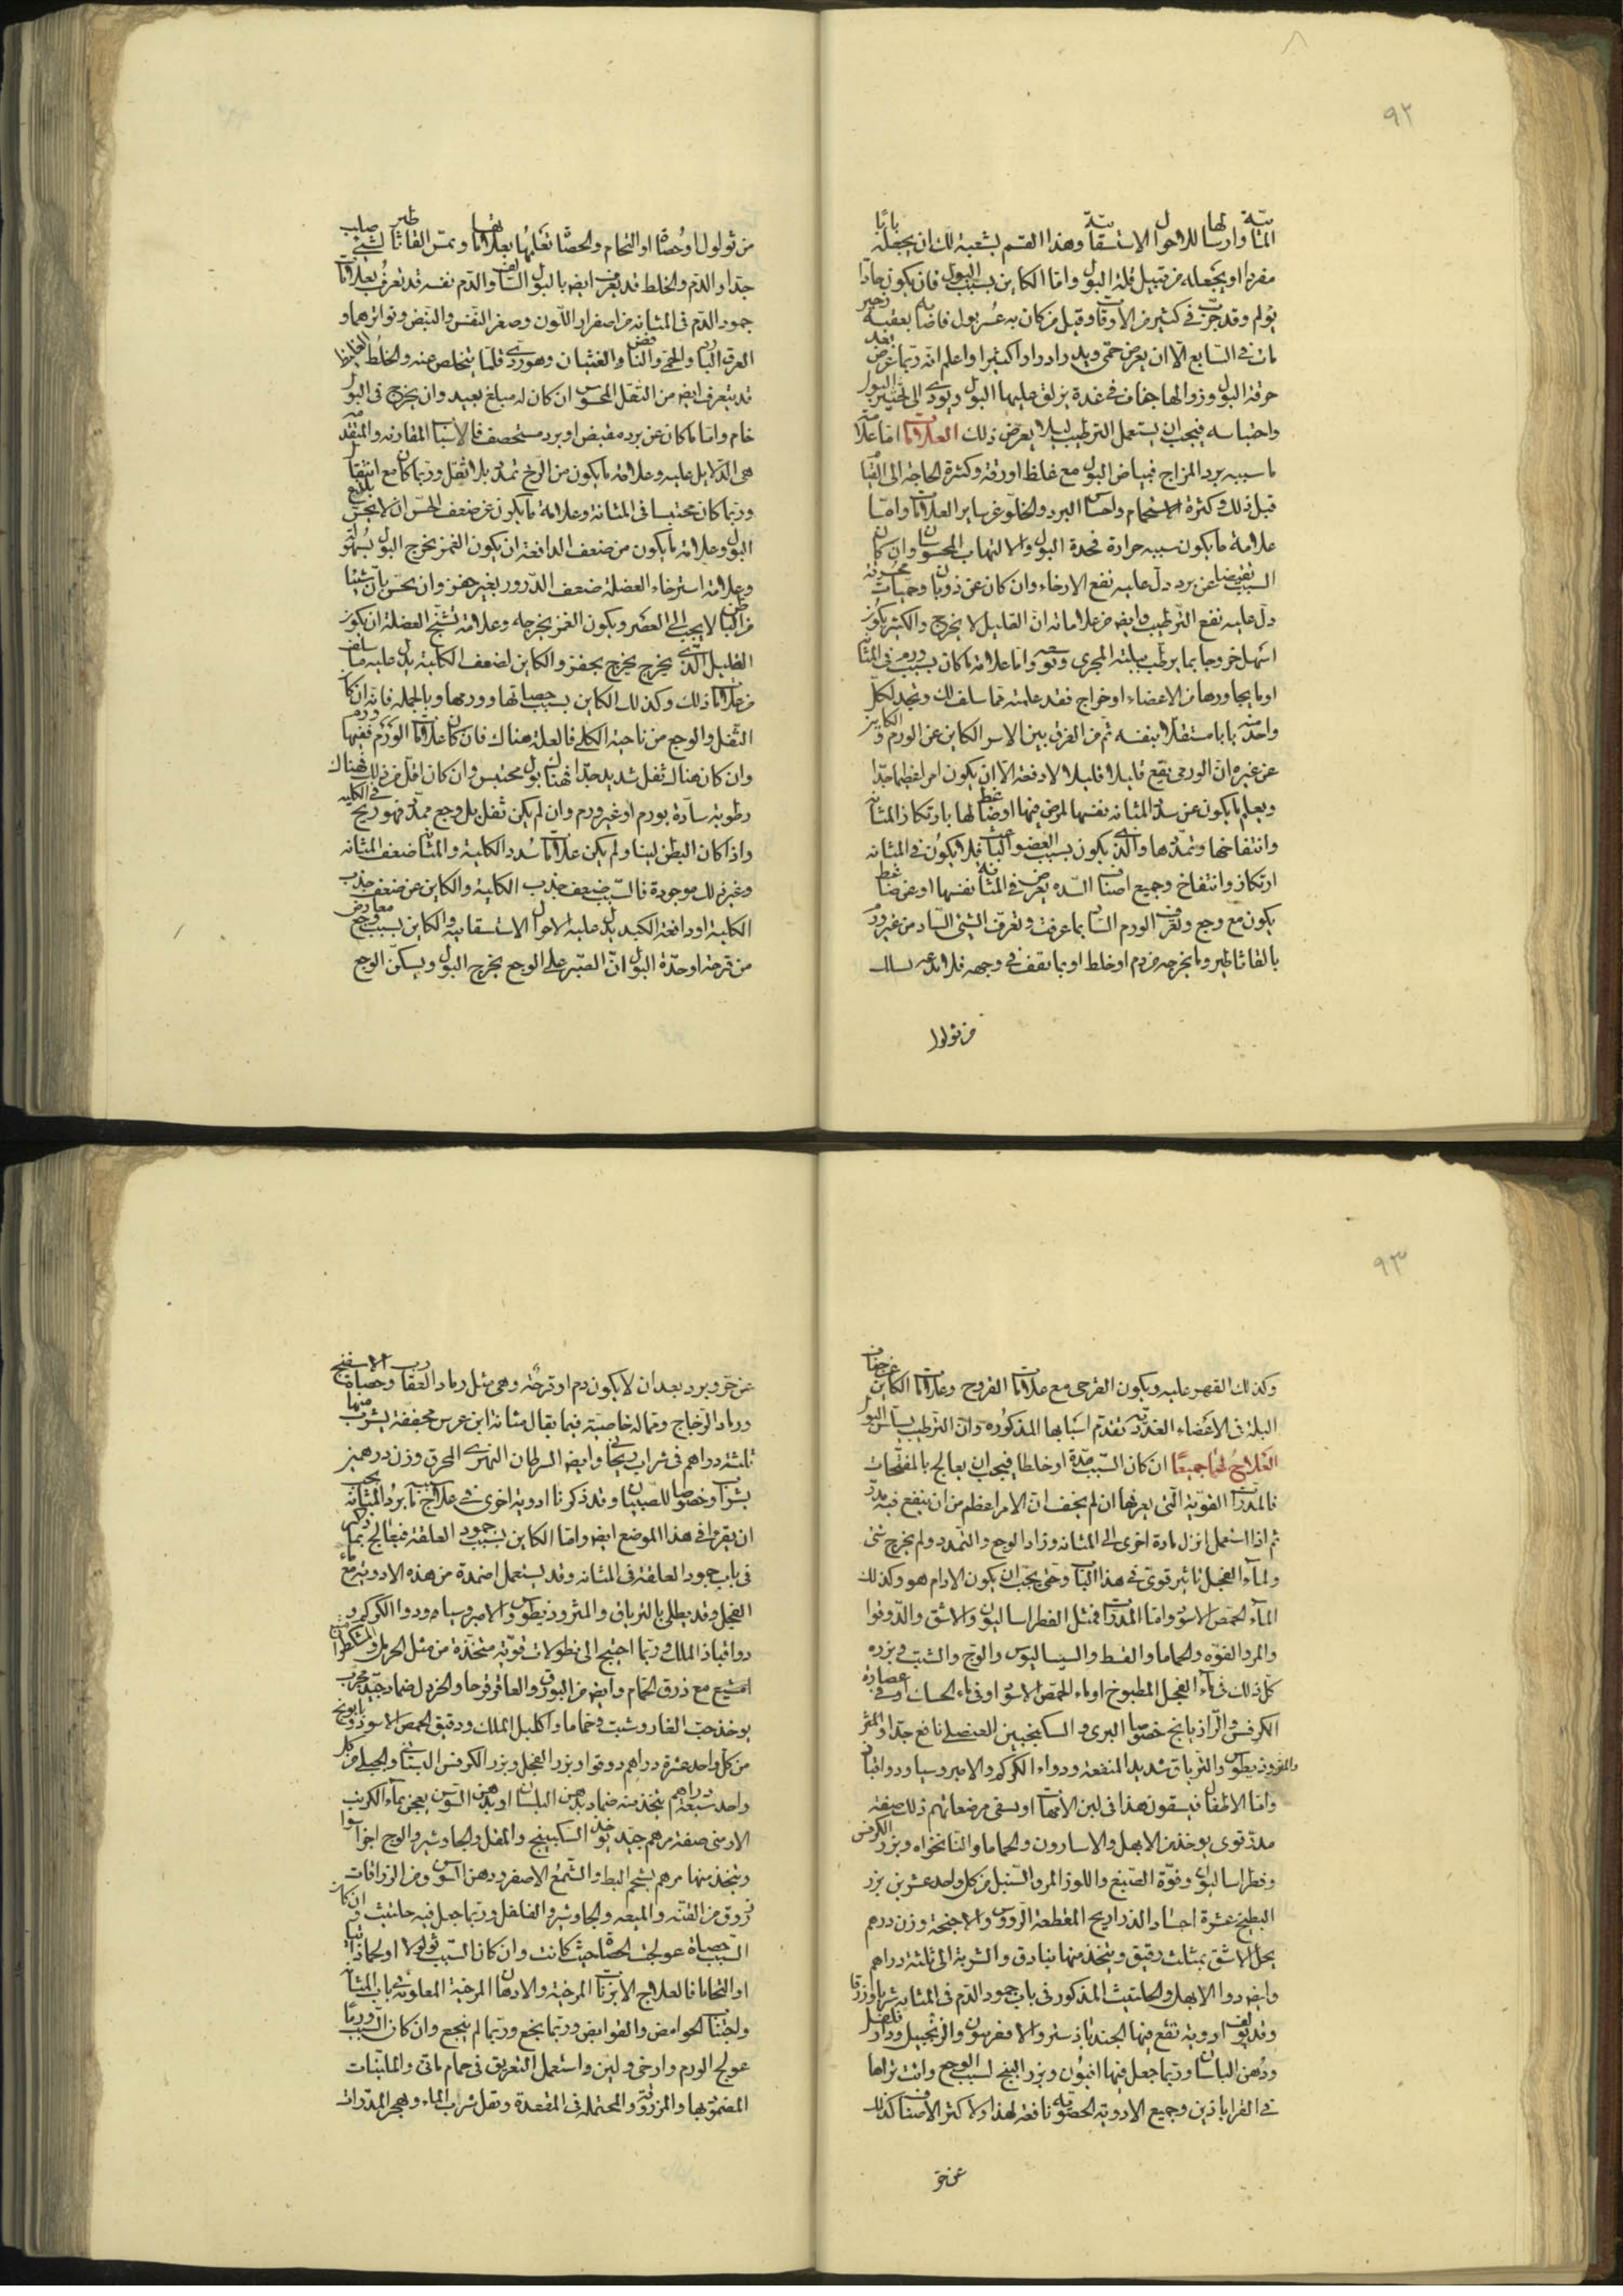 ٩٢
المثانة وارسالها للاحوال الاستسقائية وهذا القسم يشعبه لك ان يجعله بابًا
مفردا او يجعله من قبيل قلة البول واما الكاين بسبب البول فان يكون حادا
يولم وقد جرت في كثير من الاوقات وقيل من كان به عسر بول فاصابه بعقبه زحير
مات في السابع الا ان يعرض حمى ويدر ادرارا كثيرا واعلم انه ربما عرض بعد
حرقة البول وزوالها جفاف في غدة يزلق عليها البول ويودى الى تخثير البول
واحتباسه فيجب ان يستعمل الترطيب ليلا يعرض ذلك العلامات اما علامة
ما سببه برد المزاج فبياض البول مع غلظ او رقة وكثرة الحاجة الى القيام
قبل ذلك وكثرة الاستحمام واحساس البرد والخلو عن ساير العلامات واما
علامة ما يكون سببه حرارة فحدة البول والالتهاب المحسوسان وان كان
السبب تقبضا عن برد دل عليه نفع الارخاء وان كان عن ذوبان وحميات محرقة
دل عليه نفع الترطيب وايضا من علاماته ان القليل لا يخرج والكثير يكون
اسهل خروجا بما يرطب ببلته المجرى وتوسعه واما علامة ما كان بسبب ورم في المثانة
او ما يجاورها من الاعضاء او خراج فقد علمته مما سلف لك وتجد لكل
واحد منه بابا مستقلا بنفسه ثم من الفرق بين الاسر الكاين عن الورم والكاين
عن غيره ان الورمى يقع قليلا قليلا لا دفعة الا ان يكون امرا عظيما جدا
ويعلم ما يكون عن سدة المثانة نفسها لمرض فيها او ضاغط لها بارتكاز المثانة
وانتفاخها وتمددها والذى يكون بسبب العضو الباعث فلا يكون في المثانة
ارتكاز وانتفاخ وجميع اصناف السدة يعرض في المثانة نفسها او عن ضاغط
يكون مع وجع وتعرف الورم الساد بما عرفت وتعرف الشئ الساد من غير ورم
بالقاثاطير وما يخرجه من دم او خلط او بما يقف في وجهه فلا يدعه يسلك
من ثولول
من ثولول او حصاة او التحام والحصاة تعلمها بعلاماتها وبمس القاثاطير لشئ صلب
جدا والدم والخلط قد يعرف ايضا بالبول السالف والدم نفسه قد تعرف بعلامات
جمود الدم في المثانة من اصفرار اللون وصغر النفس والنبض وتواترهما و
العرق البارد والحمى والنافض والغثيان وهو ردى قلما يتخلص عنه والخلط الغليظ
قد يتعرف ايضا من الثقل المحسوس ان كان له مبلغ بعيد وان يخرج في البول
خام واما ما كان عن برد مقبض او برد مستحصف فالاسباب المقارنة والمتقدمة
هى الدلايل عليه وعلامة ما يكون من الريح تمدد بلا ثقل وربما كان مع انتقال
وربما كان محتبسا في المثانة وعلامة ما يكون عن ضعف الحس ان لا يحس بلذع
البول وعلامة ما يكون من ضعف الدافعة ان يكون الغمز يخرج البول بسهولة
وعلامة استرخاء العضلة ضعف الدرور بغير حفز وان يحس بان شيئا
من الباطن لا يجب الى العصر ويكون الغمز يخرجه وعلامة تشنج العضلة ان يكون
القليل الذى يخرج يخرج بحفز والكاين لضعف الكلية يدل عليه ما سلف
من علامات ذلك وكذلك الكاين بسبب حصاتها وورمها وبالجملة فانه ان كان
الثقل والوجع من ناحية الكلى فالعلة هناك فان كان علامات الورم ففيها ورم
وان كان هناك ثقل شديد جدا فهناك بول محتبس وان كان اقل من ذلك فهناك
رطوبة سادة بورم او غير ورم وان لم يكن ثقل بل وجع ممدد فهو ريح في الكلية
واذا كان البطن لينا ولم يكن علامات سدد الكلية والمثانة وضعف المثانة
وغير ذلك موجودة فالسبب ضعف جذب الكلية والكاين عن ضعف جذب
الكلية او دافعة الكبد يدل عليه الاحوال الاستسقائية والكاين بسبب وجع معارض
من قرحة او حدة البول ان الصبر على الوجع يخرج البول ويسكن الوجع
٩٣
وكذلك القهر عليه ويكون القرحى مع علامات القروح وعلامات الكاين عن جفاف
البلة في الاعضاء الغددية تقدم اسبابها المذكورة وان الترطيب يسلس البول
العلاج لهما جميعًا ان كان السبب مدة او خلطا فيجب ان يعالج بالمفتحات
فالمدرات القوية التى يعرفها ان لم يخف ان الامر اعظم من ان ينفع فيه مدر
ثم اذا استعمل انزل مادة اخرى الى المثانة وزاد الوجع والتمدد ولم يخرج شئ
ولماء الفجل تاثير قوى في هذا الباب حتى يجب ان يكون الادام هو وكذلك
الماء الحمص الاسود واما المدرات فمثل الفطراساليون والاشق والدوقوا
والمر والفوه والحماما والقسط والسيساليوس والوج والشبت وبزره
كل ذلك في ماء الفجل المطبوخ او ماء الحمص الاسود او في ماء الحسك او في عصارة
الكرفس والرازيانج خصوصا البرى والسكنجبين العنصلى نافع جدا والمثر
والمثروذيطوس والترياق شديد المنفعة ودواء الكركم والاميروسيا ودواء قباذ
واما الاطفال فيسقون هذا في لبن الامهات او يسقى مرضعاتهم ذلك صفة
مدر قوى يوخذ من الابهل والاسارون والحماما والنانخواه وبزر الكرفس
وفطراساليون وفوة الصبغ واللوز المر والسنبل من كل واحد عشر بن بزر
البطيخ عشرة اجساد الذراريح المقطعة الرووس والاجنحة وزن درهم
يحل الاشق بمثلث رقيق ويتخذ منها بنادق والشربة الى ثلثة دراهم
وايضا دوا الابهل والحلتيث المذكور في باب جمود الدم في المثانة شربا وزرقا
وقد يولف ادوية تقع فيها الجندبادستر والافربيون والزنجبيل ودار فلفل
ودهن البلسان وربما جعل فيها افيون وبزر البنج لسبب الوجع وانت تراها
في القراباذين وجميع الادوية الحصوية نافعة لهذا ولاكثر الاصناف كذلك
عن حر
عن حر وبرد بعد ان لا يكون دم او قرحة وهى مثل رماد العقارب وحصاة الاسفنج
ورماد الزجاج ومما له خاصية فيما يقال مثانة ابن عرس مجففة يشرب منها
ثلثة دراهم في شراب ريحانى وايضا السرطان النهرى المحرق وزن درهمين
بشراب وخصوصا للصبيان وقد ذكرنا ادوية اخرى في علاج برد المثانة يجب
ان يقرا في هذا الموضع ايضا واما الكاين بسبب جمود العلقة فيعالج بما ذكر
في باب جمود العلقة في المثانة وقد يستعمل اضمدة من هذه الادوية مع ماء
الفجل وقد يطلى بالترياق والمثروذيطوس والاميروسيا ودوا الكركم و
دوا قباذ الملك وربما احتيج الى نطولات قوية متخذة من مثل الحرمل والمشكطرا
امشيع مع ذرق الحمام وايضا من البورق والعاقرقرحا والخردل ضماد جيد مجرب
يوخذ حب الغار وشبت وحماما واكليل الملك ودقيق الحمص الاسود وبابونج
من كل واحد عشرة دراهم دوقوا وبزر الفجل وبزر الكرفس البستانى والجبلى من كل
واحد سبعة دراهم يتخذ منه ضماد بدهن البلسان او بدهن السوسن يعجن بماء الكرنب
الارمنى صفة مرهم جيد يوخذ السكبينج والمقل والجاوشير والوج اجزا سوا
ويتخذ منها مرهم بشحم البط والشمع الاصفر ودهن السوسن ومن الزراقات
زروق من القنه والميعه والجاوشير والفلفل وربما جعل فيه حلتيث وان كان
السبب حصاة عولجت الحصاة حيث كانت وان كان السبب ثولولا او لحما نابتا
او التحاما فالعلاج الابزنات المرخية والادهان المرخية المعلومة في باب المثانة
واجتناب الحوامض والقوابض وربما نجع وربما لم ينجع وان كان السبب ورمًا
عولج الورم وارخى ولين واستعمل التعريق في حمام مائى والملينات
المضمود بها والمزروقة والمحتملة في المقعدة وتقل شراب الماء ويهجر المدرات